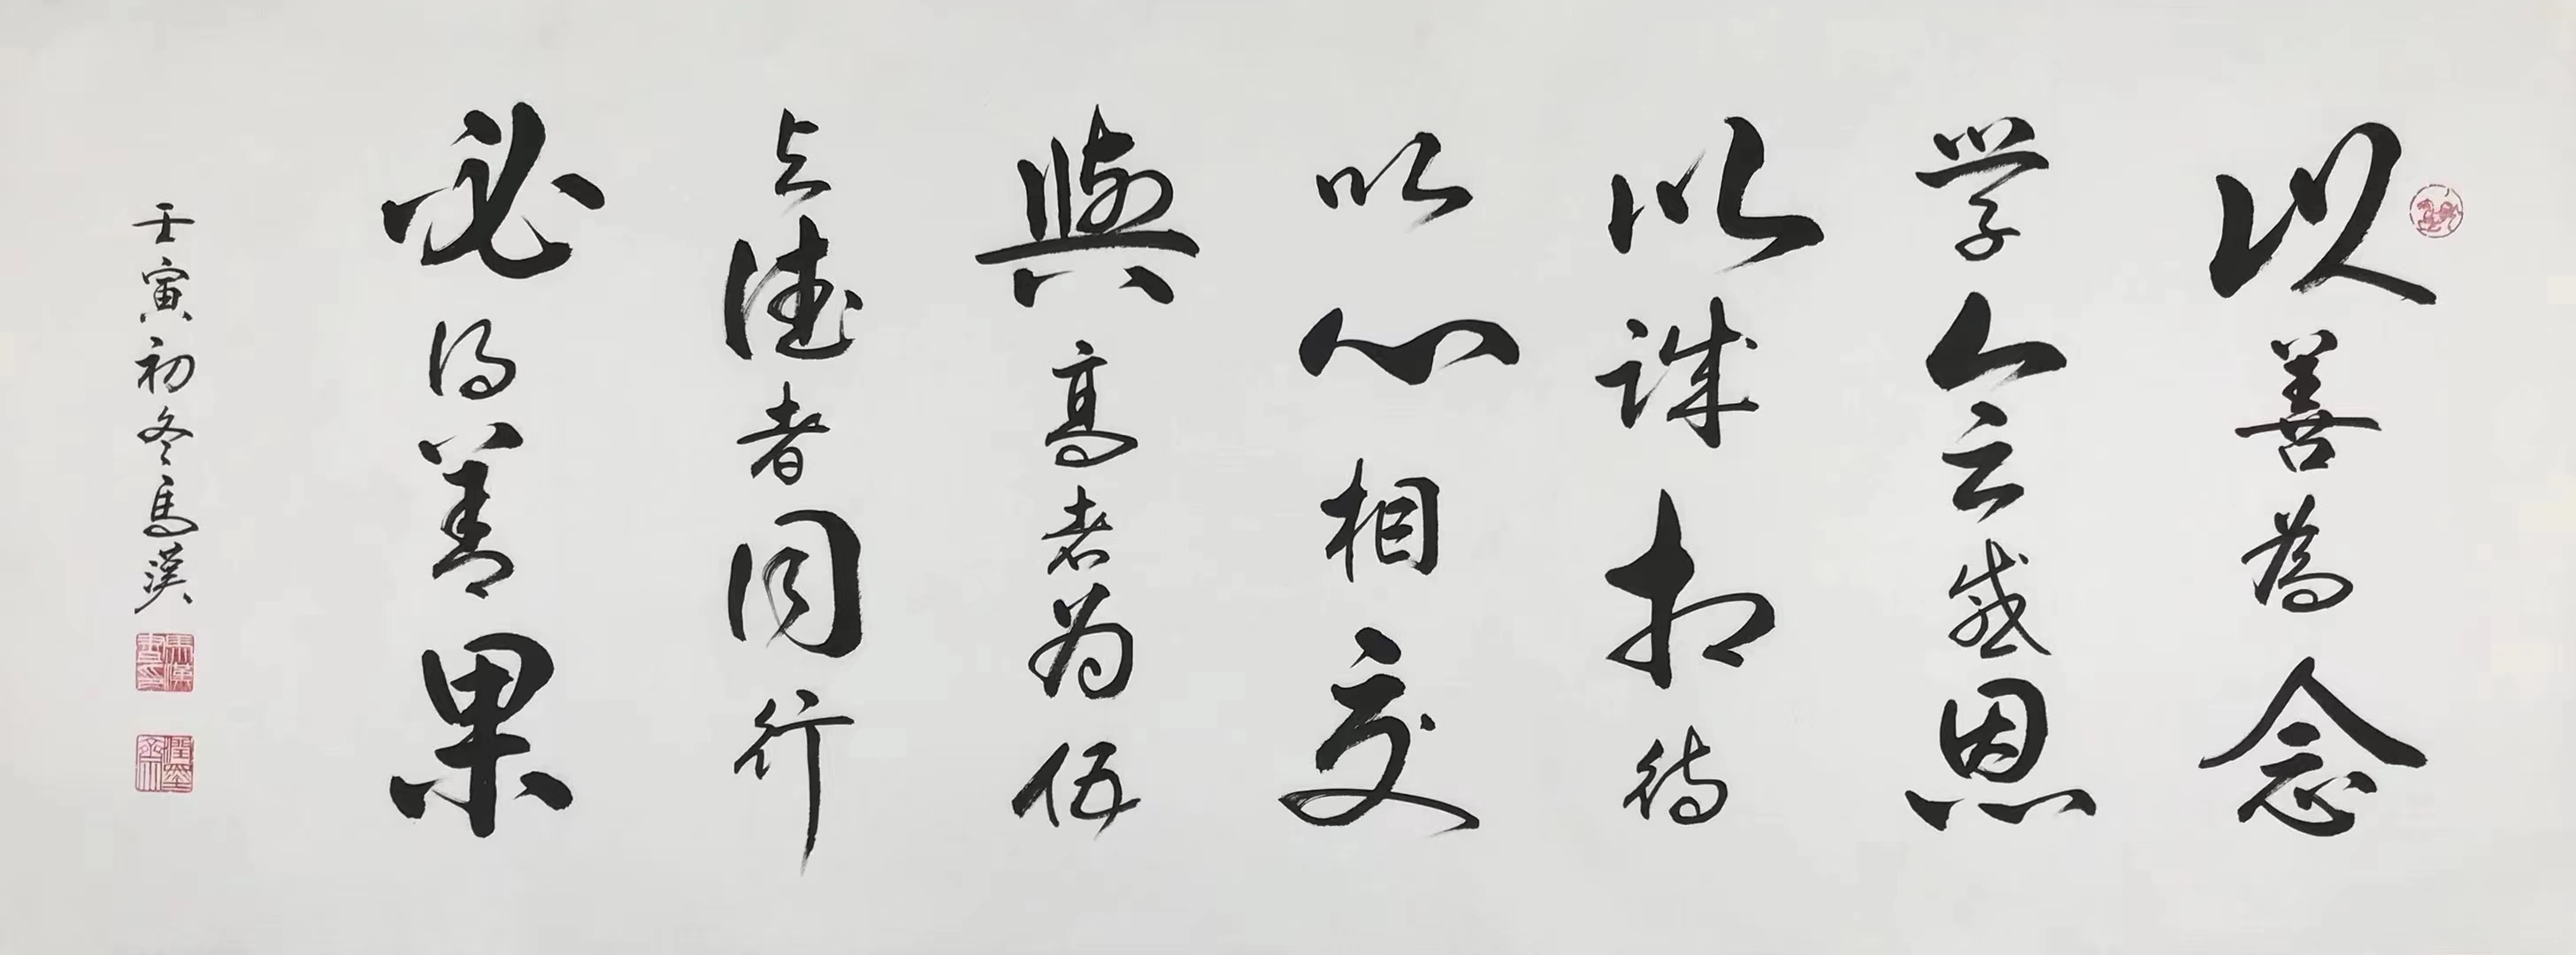 以善為念
学会感恩
以诚相待
以心相交
與高者为伍
与德者同行
必得善果
壬寅初冬馬漢
馬漢書印
潤墨齋